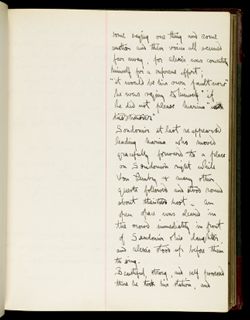 some saying one thing and some
another and their voices all seemed
far away, for Alexis was consulting
himself for a supreme effort;
"it would be his own fault now"
he was saying to himself "if
he did not please Marina"
Sandonin at last re appeared
leading Marina who moved
gracefully forward to a place
on Sandonin's right while
Von and many other
guests followed and stood round
about their host - an
open space was cleared in
the crowd immediately in front
of Sandonin & his daughter
and Alexis stood up before them
to sing.
Beautiful, strong, and self possessed
there he took his station, and